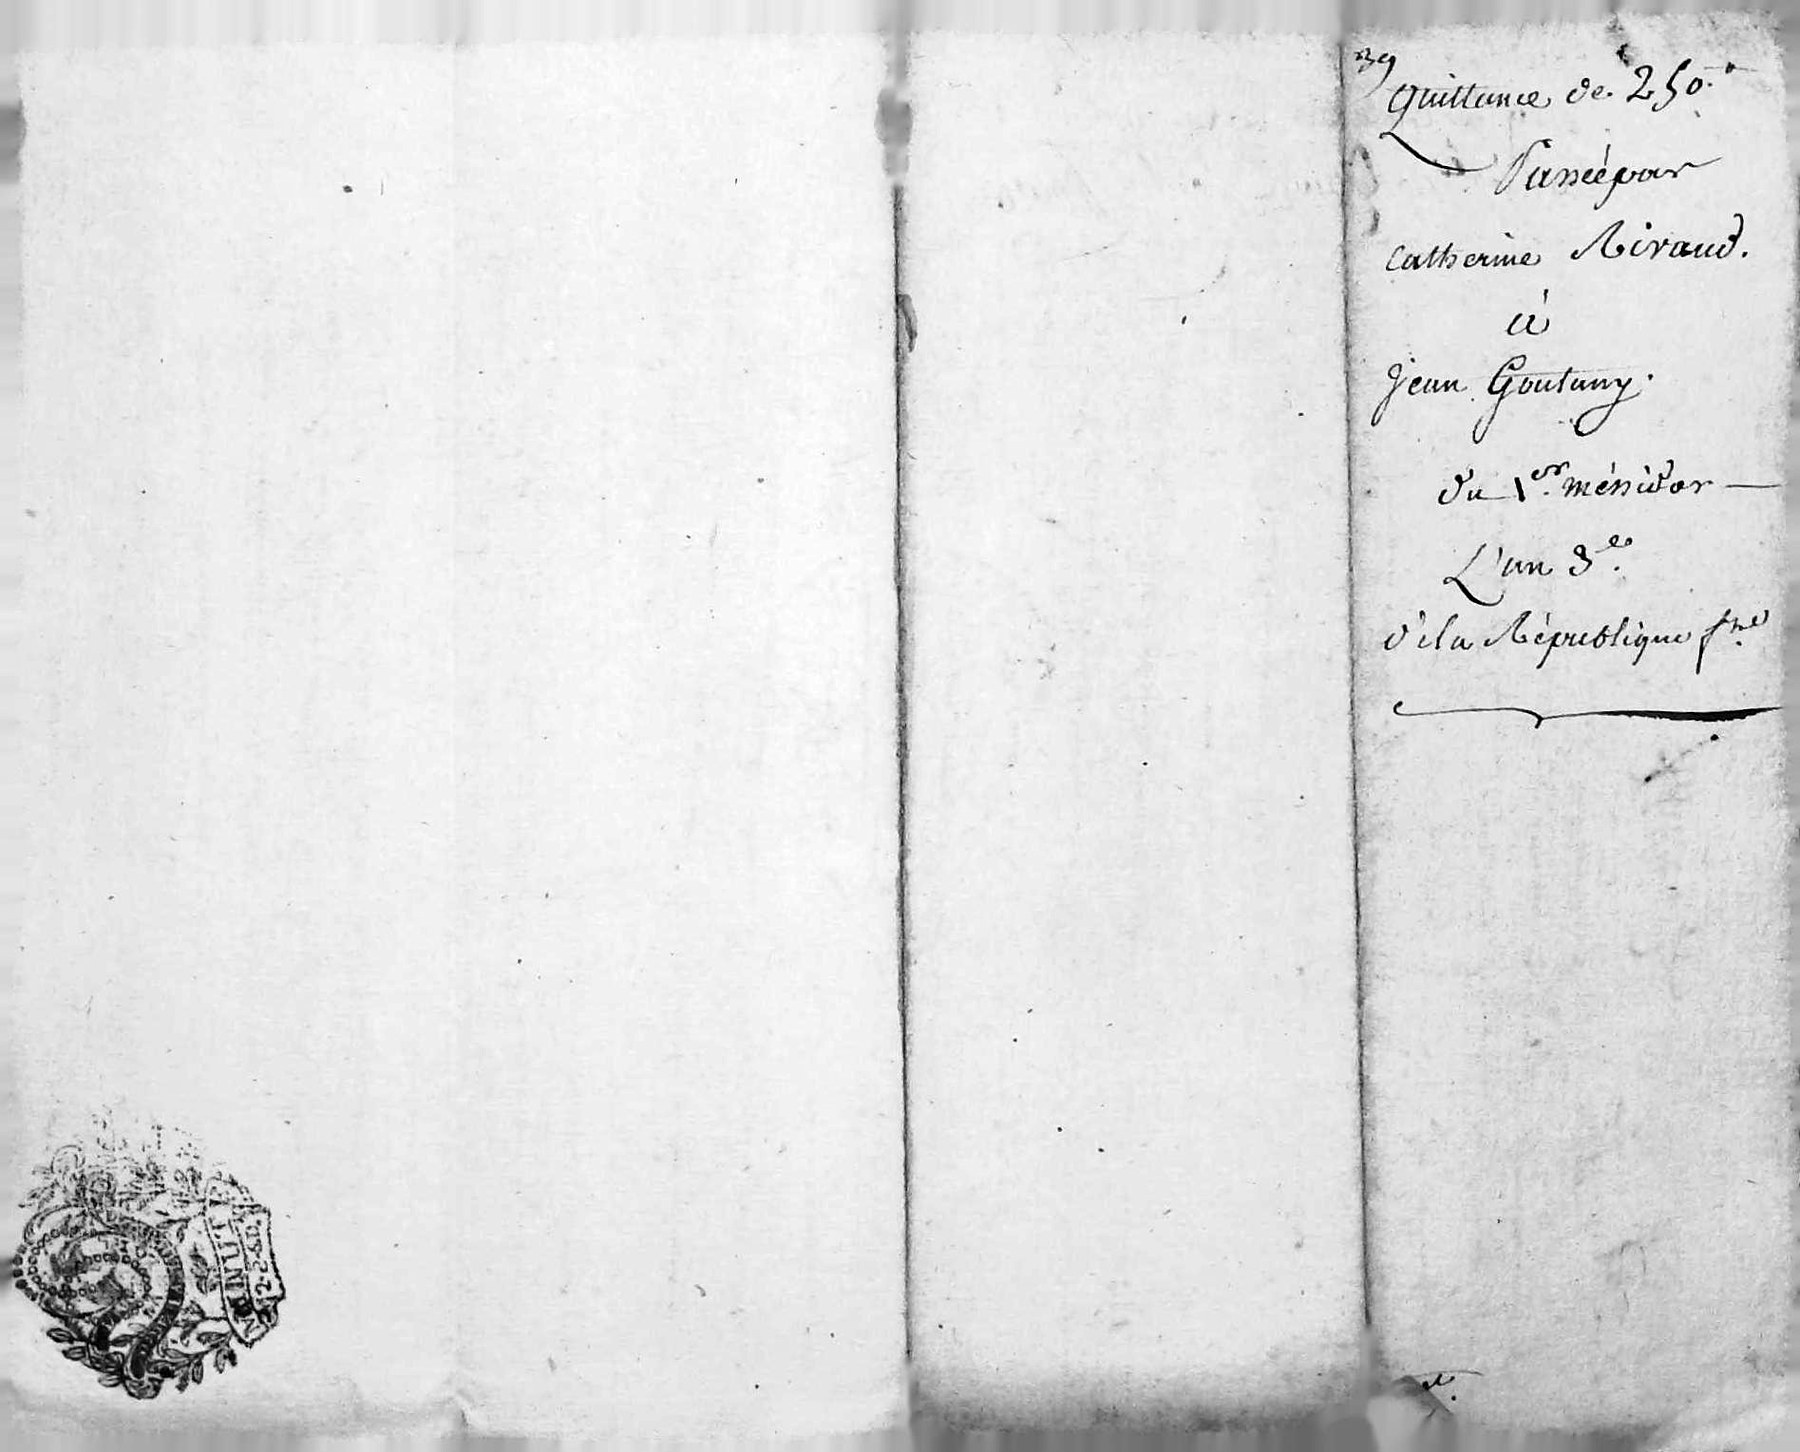 39
Quittance de 250.#
Passée par
Catherine Rivaud.
à
Jean Goutany.
du 1.er méssidor —
L'an 3.e
de la République f.ne